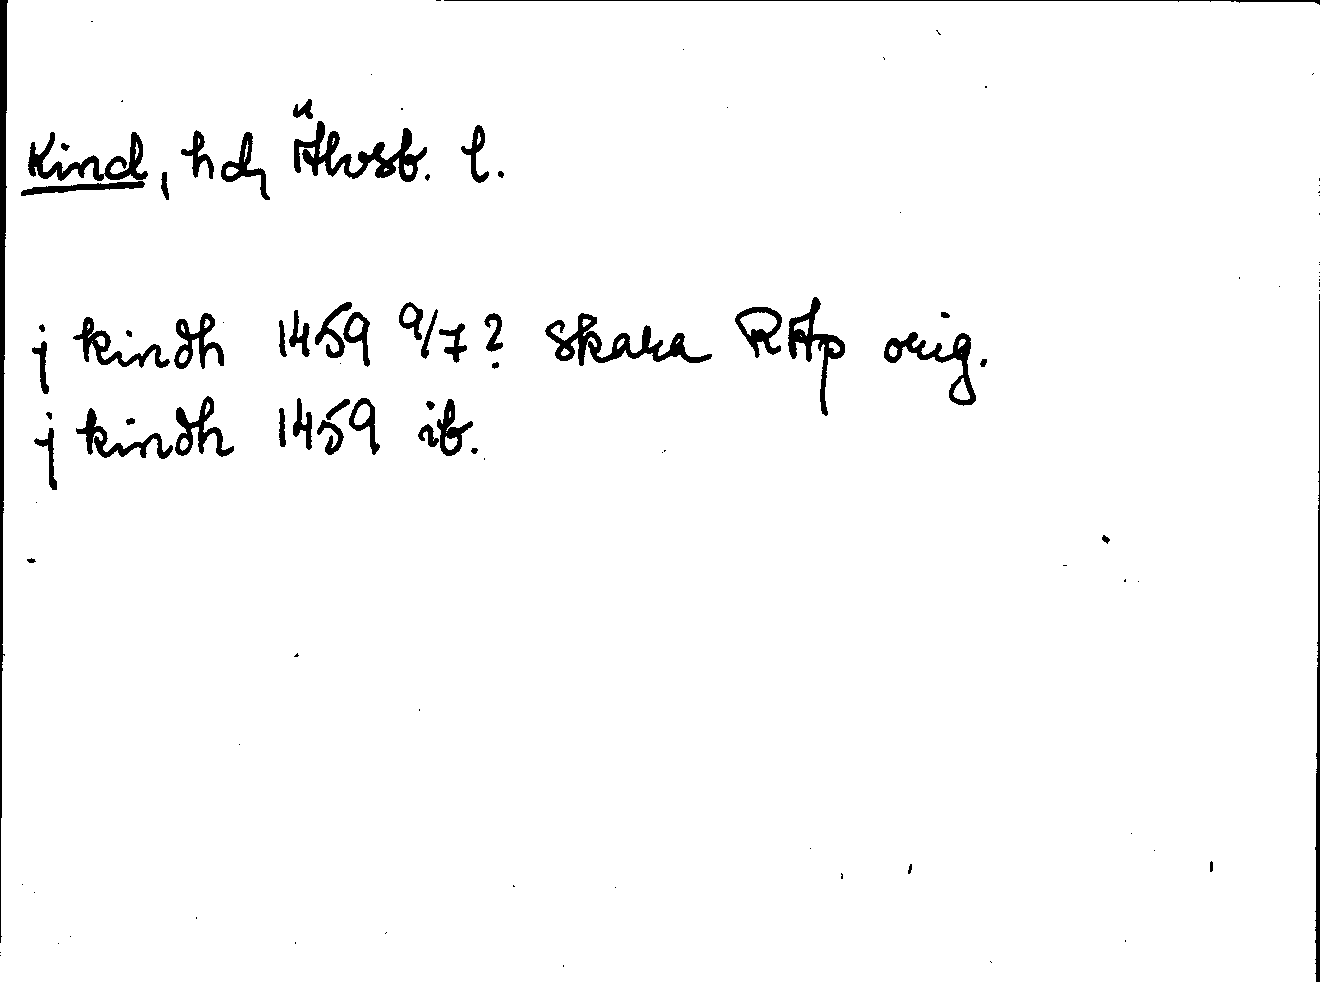 Kind, hd, Älvsb. l.
j kindh 1459 9/7? Skara RAp orig.
j kindh 1459 ib.